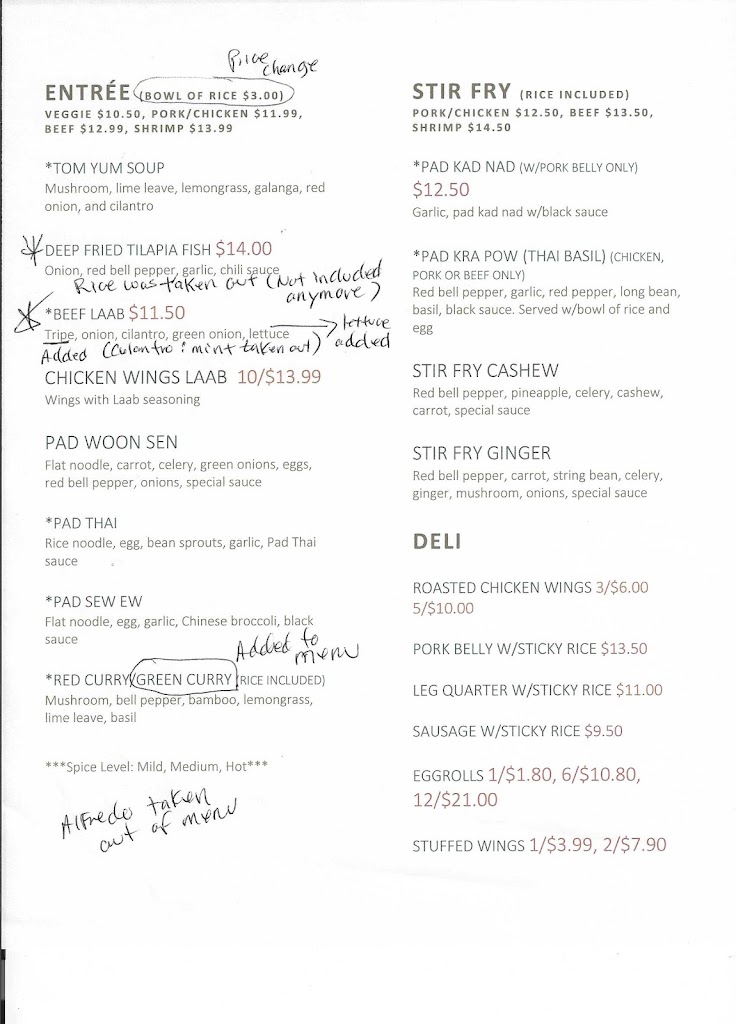 Price
change
ENTRÉE (BOWL OF RICE $3.00)
VEGGIE $10.50, PORK/CHICKEN $11.99,
BEEF $12.99, SHRIMP $13.99
*TOM YUM SOUP
Mushroom, lime leave, lemongrass, galanga, red
onion, and cilantro
DEEP FRIED TILAPIA FISH $14.00
Onion, red bell pepper, garlic, chili sauce
Rice was taken out (Not included
anymore)
*BEEF LAAB $11.50
Tripe, onion, cilantro, green onion, lettuce
lettuce
added
Added (Culantro & mint taken out)
CHICKEN WINGS LAAB 10/$13.99
Wings with Laab seasoning
PAD WOON SEN
Flat noodle, carrot, celery, green onions, eggs,
red bell pepper, onions, special sauce
*PAD THAI
Rice noodle, egg, bean sprouts, garlic, Pad Thai
sauce
*PAD SEW EW
Flat noodle, egg, garlic, Chinese broccoli, black
sauce
Added to
menu
*RED CURRY/GREEN CURRY (RICE INCLUDED)
Mushroom, bell pepper, bamboo, lemongrass,
lime leave, basil
***Spice Level: Mild, Medium, Hot***
Alfredo taken
out of menu
STIR FRY (RICE INCLUDED)
PORK/CHICKEN $12.50, BEEF $13.50,
SHRIMP $14.50
*PAD KAD NAD (W/PORK BELLY ONLY)
$12.50
Garlic, pad kad nad w/black sauce
*PAD KRA POW (THAI BASIL) (CHICKEN,
PORK OR BEEF ONLY)
Red bell pepper, garlic, red pepper, long bean,
basil, black sauce. Served w/bowl of rice and
egg
STIR FRY CASHEW
Red bell pepper, pineapple, celery, cashew,
carrot, special sauce
STIR FRY GINGER
Red bell pepper, carrot, string bean, celery,
ginger, mushroom, onions, special sauce
DELI
ROASTED CHICKEN WINGS 3/$6.00
5/$10.00
PORK BELLY W/STICKY RICE $13.50
LEG QUARTER W/STICKY RICE $11.00
SAUSAGE W/STICKY RICE $9.50
EGGROLLS 1/$1.80, 6/$10.80,
12/$21.00
STUFFED WINGS 1/$3.99, 2/$7.90